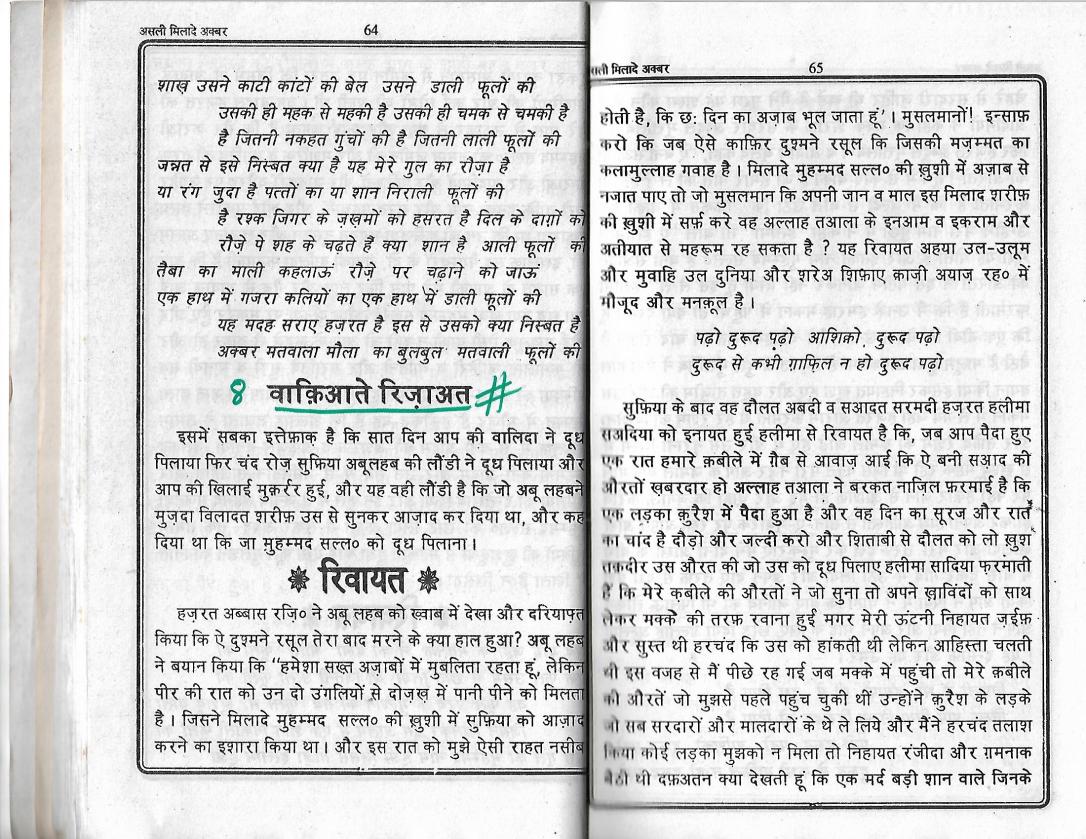 असली मिलादे अक्बर
64
शाख़ उसने काटी कांटों की बेल उसने डाली फूलों की
उसकी ही महक से महकी है उसकी ही चमक से चमकी है
है जितनी नकहत गुंचों की है जितनी लाली फूलों की
जन्नत से इसे निस्बत क्या है यह मेरे गुल का रोज़ा है
या रंग जुदा है पत्तों का या शान निराली फूलों की
है रश्क जिगर के ज़ख़मों को हसरत है दिल के दाग़ों को
रौज़े पे शह के चढ़ते हैं क्या शान है आली फूलों की
तैबा का माली कहलाऊं रौज़े पर चढ़ाने को जाऊं
एक हाथ में गजरा कलियों का एक हाथ में डाली फूलों की
यह मदह सराए हज़रत है इस से उसको क्या निस्बत है
अक्बर मतवाला मौला का बुलबुल मतवाली फूलों की
8 वाक़िआते रिज़ाअत #
इसमें सबका इत्तेफ़ाक़ है कि सात दिन आप की वालिदा ने दूध
पिलाया फिर चंद रोज़ सुफ़िया अबूलहब की लौंडी ने दूध पिलाया और
आप की खिलाई मुक़र्रर हुई, और यह वही लौंडी है कि जो अबू लहबने
मुज़दा विलादत शरीफ़ उस से सुनकर आज़ाद कर दिया था, और कह
दिया था कि जा मुहम्मद सल्ल० को दूध पिलाना।
रिवायत
हज़रत अब्बास रज़ि० ने अबू लहब को ख्वाब में देखा और दरियाफ्त
किया कि ऐ दुश्मने रसूल तेरा बाद मरने के क्या हाल हुआ? अबू लहब
ने बयान किया कि "हमेशा सख्त अज़ाबों में मुबलिता रहता हूं, लेकिन
पीर की रात को उन दो उंगलियों से दोज़ख़ में पानी पीने को मिलता
है। जिसने मिलादे मुहम्मद सल्ल० की ख़ुशी में सुफ़िया को आज़ाद
करने का इशारा किया था। और इस रात को मुझे ऐसी राहत नसीब
मिलादे अक्बर
65
होती है, कि छ: दिन का अज़ाब भूल जाता हूं'। मुसलमानों! इन्साफ़
करो कि जब ऐसे काफ़िर दुश्मने रसूल कि जिसकी मज़म्मत का
कलामुल्लाह गवाह है। मिलादे मुहम्मद सल्ल० की ख़ुशी में अज़ाब से
नजात पाए तो जो मुसलमान कि अपनी जान व माल इस मिलाद शरीफ़
की ख़ुशी में सर्फ़ करे वह अल्लाह तआला के इनआम व इकराम और
अतीयात से महरूम रह सकता है ? यह रिवायत अहया उल-उलूम
और मुवाहि उल दुनिया और शरेअ शिफ़ाए क़ाज़ी अयाज़ रह० में
मौजूद और मनक़ूल है।
पढ़ो दुरूद पढ़ो आशिक़ो दुरूद पढ़ो
दुरूद से कभी ग़ाफ़िल न हो दुरूद पढ़ो
सुफ़िया के बाद वह दौलत अबदी व सआदत सरमदी हज़रत हलीमा
सअदिया को इनायत हुई हलीमा से रिवायत है कि, जब आप पैदा हुए
एक रात हमारे क़बीले में ग़ैब से आवाज़ आई कि ऐ बनी सआद की
औरतों ख़बरदार हो अल्लाह तआला ने बरकत नाजिल फ़रमाई है कि
एक लड़का क़ुरैश में पैदा हुआ है और वह दिन का सूरज और रात
का चांद है दौड़ो और जल्दी करो और शिताबी से दौलत को लो ख़ुश
तक़दीर उस औरत की जो उस को दूध पिलाए हलीमा सादिया फ़रमाती
हैं कि मेरे क़बीले की औरतों ने जो सुना तो अपने ख़ाविंदों को साथ
लेकर मक्के की तरफ़ रवाना हुई मगर मेरी ऊंटनी निहायत ज़ईफ़
और सुस्त थी हरचंद कि उस को हांकती थी लेकिन आहिस्ता चलती
थी इस वजह से मैं पीछे रह गई जब मक्के में पहुंची तो मेरे क़बीले
की औरतें जो मुझसे पहले पहुंच चुकी थीं उन्होंने क़ुरैश के लड़के
जो सब सरदारों और मालदारों के थे ले लिये और मैंने हरचंद तलाश
किया कोई लड़का मुझको न मिला तो निहायत रंजीदा और ग़मनाक
बैठी थी दफ़अतन क्या देखती हूं कि एक मर्द बड़ी शान वाले जिनके